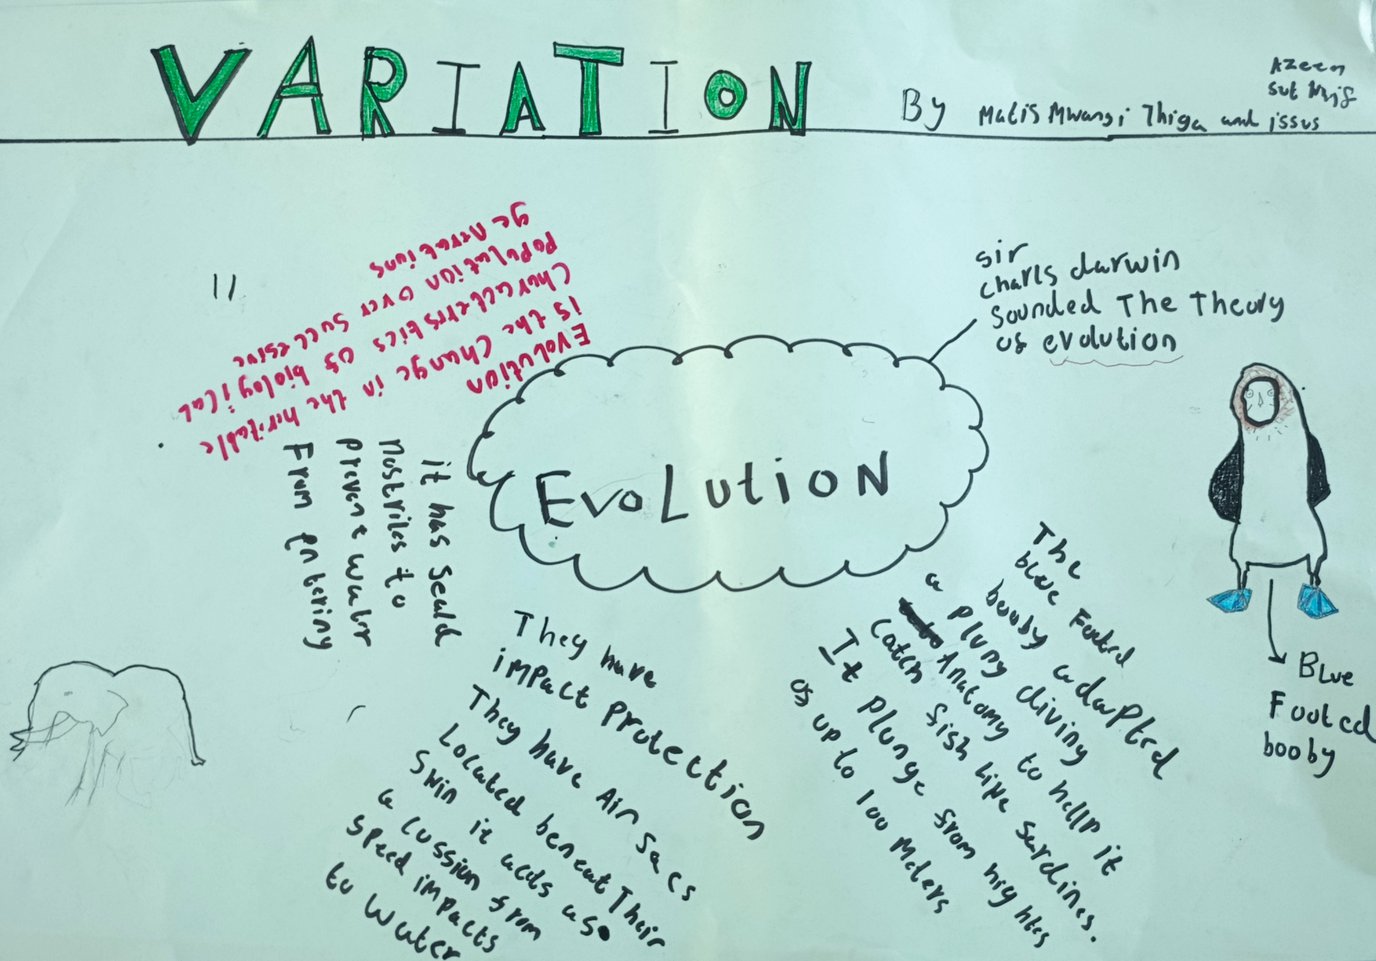 VARIATION
By Matis Mwangi Thiga and issus
Azeem
sir
charls darwin
sounded The Theory
of evolution
Evolution
is the change in the heritable
Characterstics of biological
Population over successive
generations
EVoLutioN
it has seald
nostriles to
prevent water
From Entering
They have
impact protection
They have Air sacs
Located beneat Their
Skin it acts as
a cussion from
speed impacts
to water
The
blue Footed
booby adapted
a plung diving
Anatomy to hellp it
catch fish like sardines.
It plunge from highter
of up to 100 Meters
BLue
Footed
booby